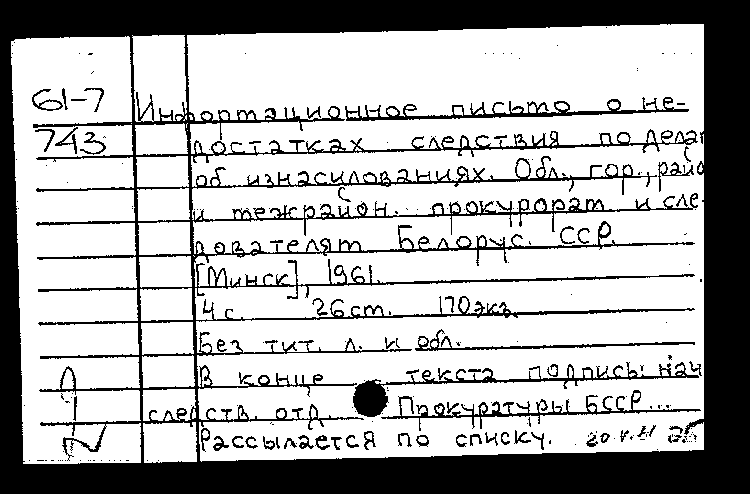 61-7
743
Информационное письмо о не-
достатках следствия по делам
об изнасилованиях. Обл., гор., райо
и межрайон. прокурорам и сле-
дователям Белорус. ССР.
[Минск], 1961.
4 с. 26 см. 170 экз.
Без тит. л. и обл.
В конце текста подпись: нач
следств. отд. Прокуратуры БССР...
Рассылается по списку.